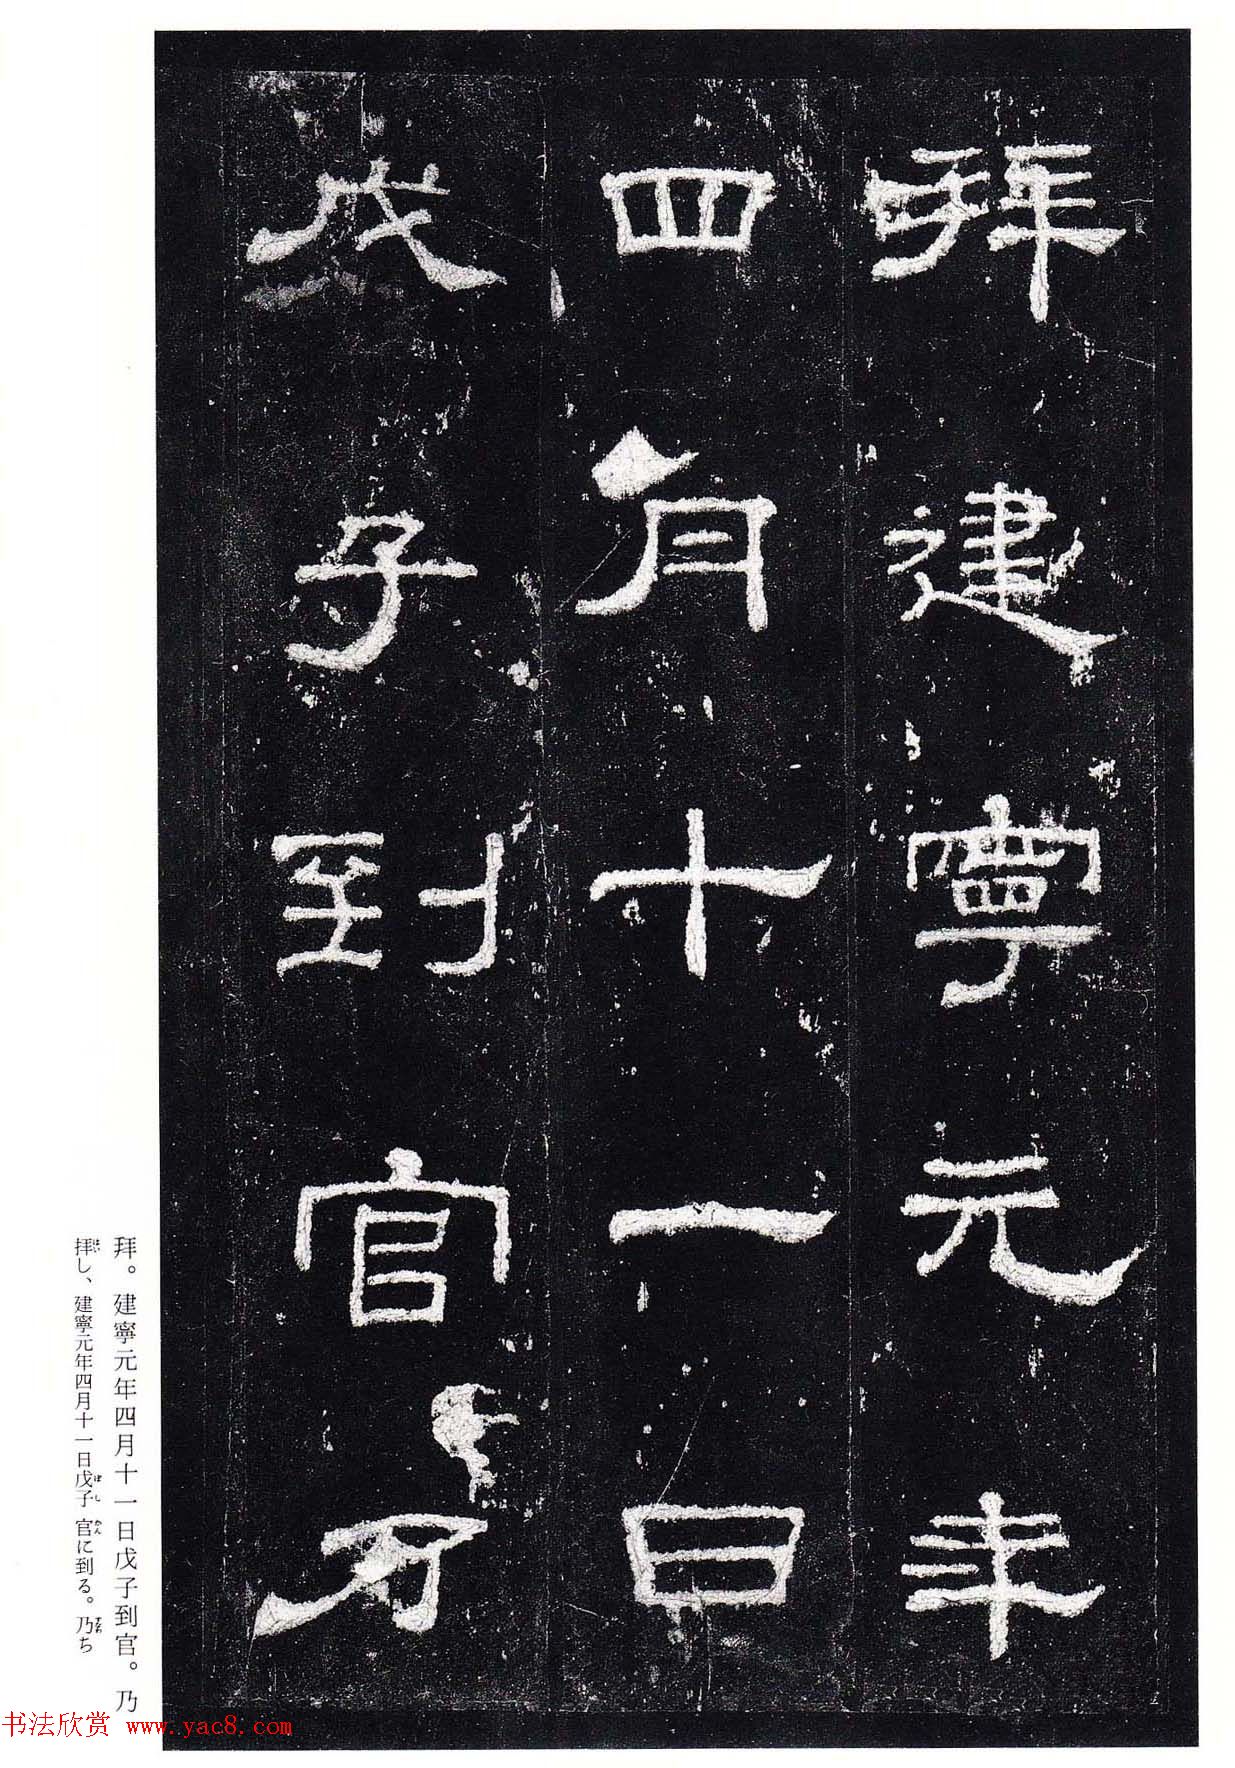 拜建寧元年
四月十一日
戊子到官乃
拜。建寧元年四月十一日戊子到官。乃
拝し、建寧元年四月十一日戊子官に到る。乃ち
はい
ぼし
かん
すなわ
书法欣赏 www.yac8.com